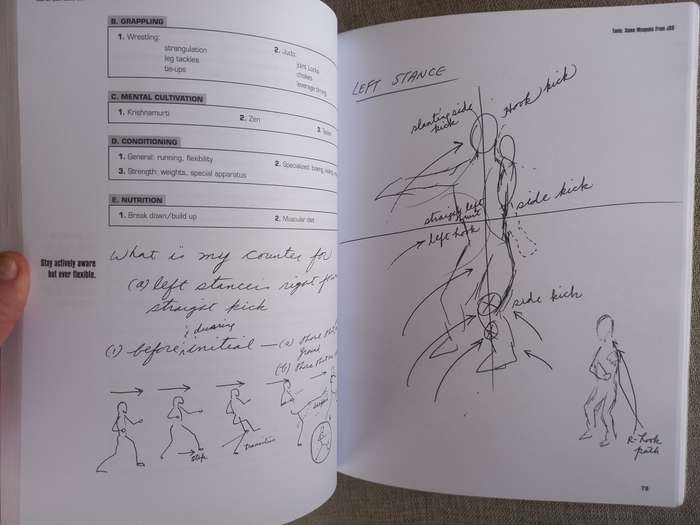 B. GRAPPLING
1. Wrestling:
strangulation
leg tackles
tie-ups
2. Judo:
joint locks
chokes
leverage throwing
C. MENTAL CULTIVATION
1. Krishnamurti
2. Zen
3.
D. CONDITIONING
1. General: running, flexibility
2. Specialized: boxing,
3. Strength: weights, special apparatus
E. NUTRITION
1. Break down/build up
2. Muscular diet
Stay actively aware
but ever flexible.
What is my counter for
(a) left stancer's right
straight kick
during
(1) before, initial — (a)
groin
(b)
step
transition
Tools: Some Weapons From JKD
LEFT STANCE
slanting side
kick
Hook kick
straight left
left hook
side kick
side kick
R-hook
path
79